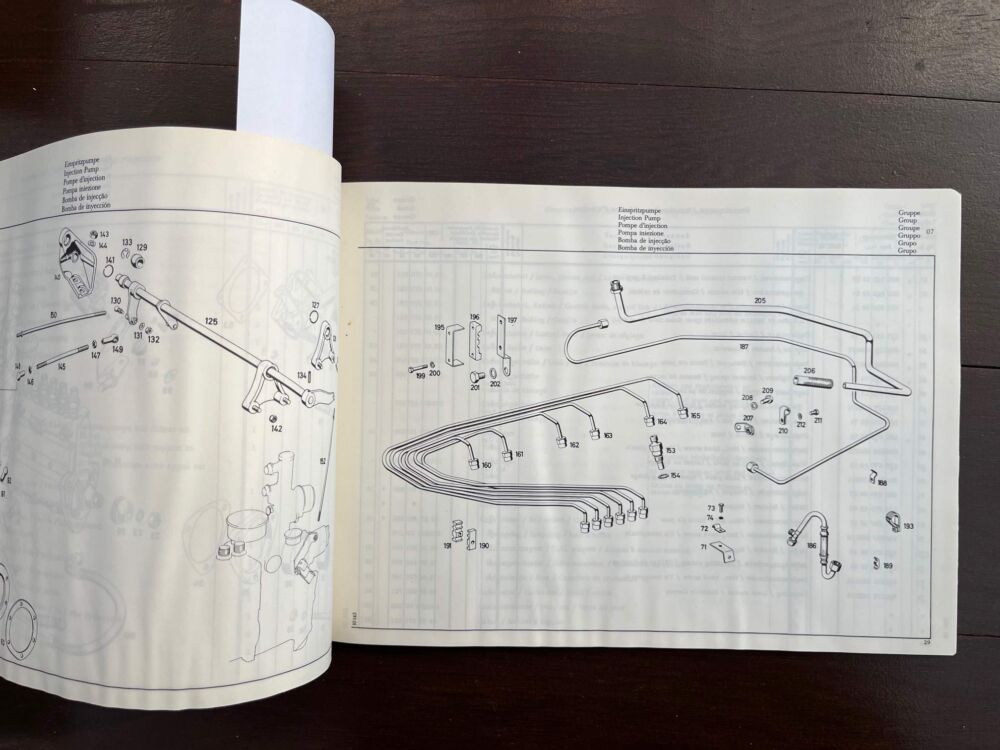 Einspritzpumpe
Injection Pump
Pompe d'injection
Pompa iniezione
Bomba de injecção
Bomba de inyección
143
144
133
129
141
130
150
125
127
131
132
147
149
145
146
134
142
Einspritzpumpe
Injection Pump
Pompe d'injection
Pompa iniezione
Bomba de injecção
Bomba de inyección
Gruppe
Group
Groupe
Gruppo
Grupo
Grupo
07
205
195
196
197
187
199
200
201
202
206
208
209
207
210
212
211
165
164
163
162
161
160
153
154
188
73
74
72
71
193
186
189
191
190
29